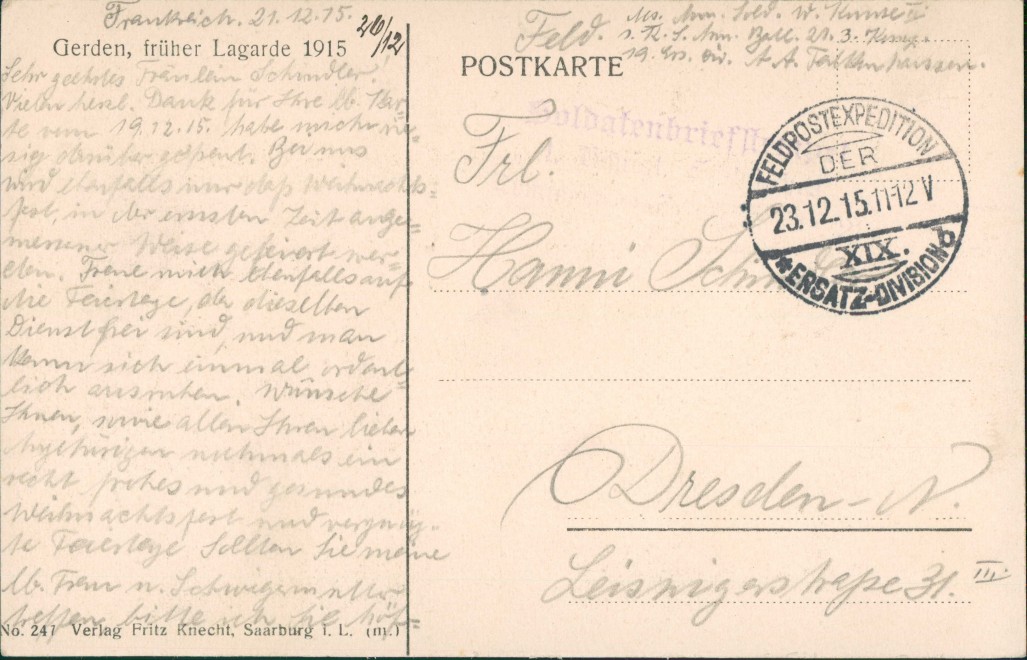 Frankreich. 21.12.15.
26/12
Gerden, früher Lagarde 1915
Sehr geehrtes Fräulein Schindler!
Vielen herzl. Dank für Ihre lb. Kar-
te vom 19.12.15. habe mich rie-
sig darüber gefreut. Bei uns
wird ebenfalls nur das Weihnachts-
fest, in der ernsten Zeit ange-
messener Weise gefeiert wer-
den. Freue mich ebenfalls auf
die Feiertage, da dieselben
Dienstfrei sind, und man
kann sich einmal ordent-
lich ausruhen. Wünsche
Ihnen, sowie allen Ihren lieben
Angehörigen nochmals ein
recht frohes und gesundes
Weihnachtsfest und vergnüg-
te Feiertage Sollten Sie meine
lb. Frau u. Schwiegermutter
treffen bitte ich Sie höf-
No. 247 Verlag Fritz Knecht, Saarburg i. L. (m.)
Feld. Sold. W.
21. 3. Komp.
19. Ers. Div.
POSTKARTE
Soldatenbrief
FELDPOSTEXPEDITION
DER
23.12.15.11-12 V
XIX.
* ERSATZ-DIVISION b
Frl.
Hanni
Dresden-N.
Leisnigerstraße 31. III.